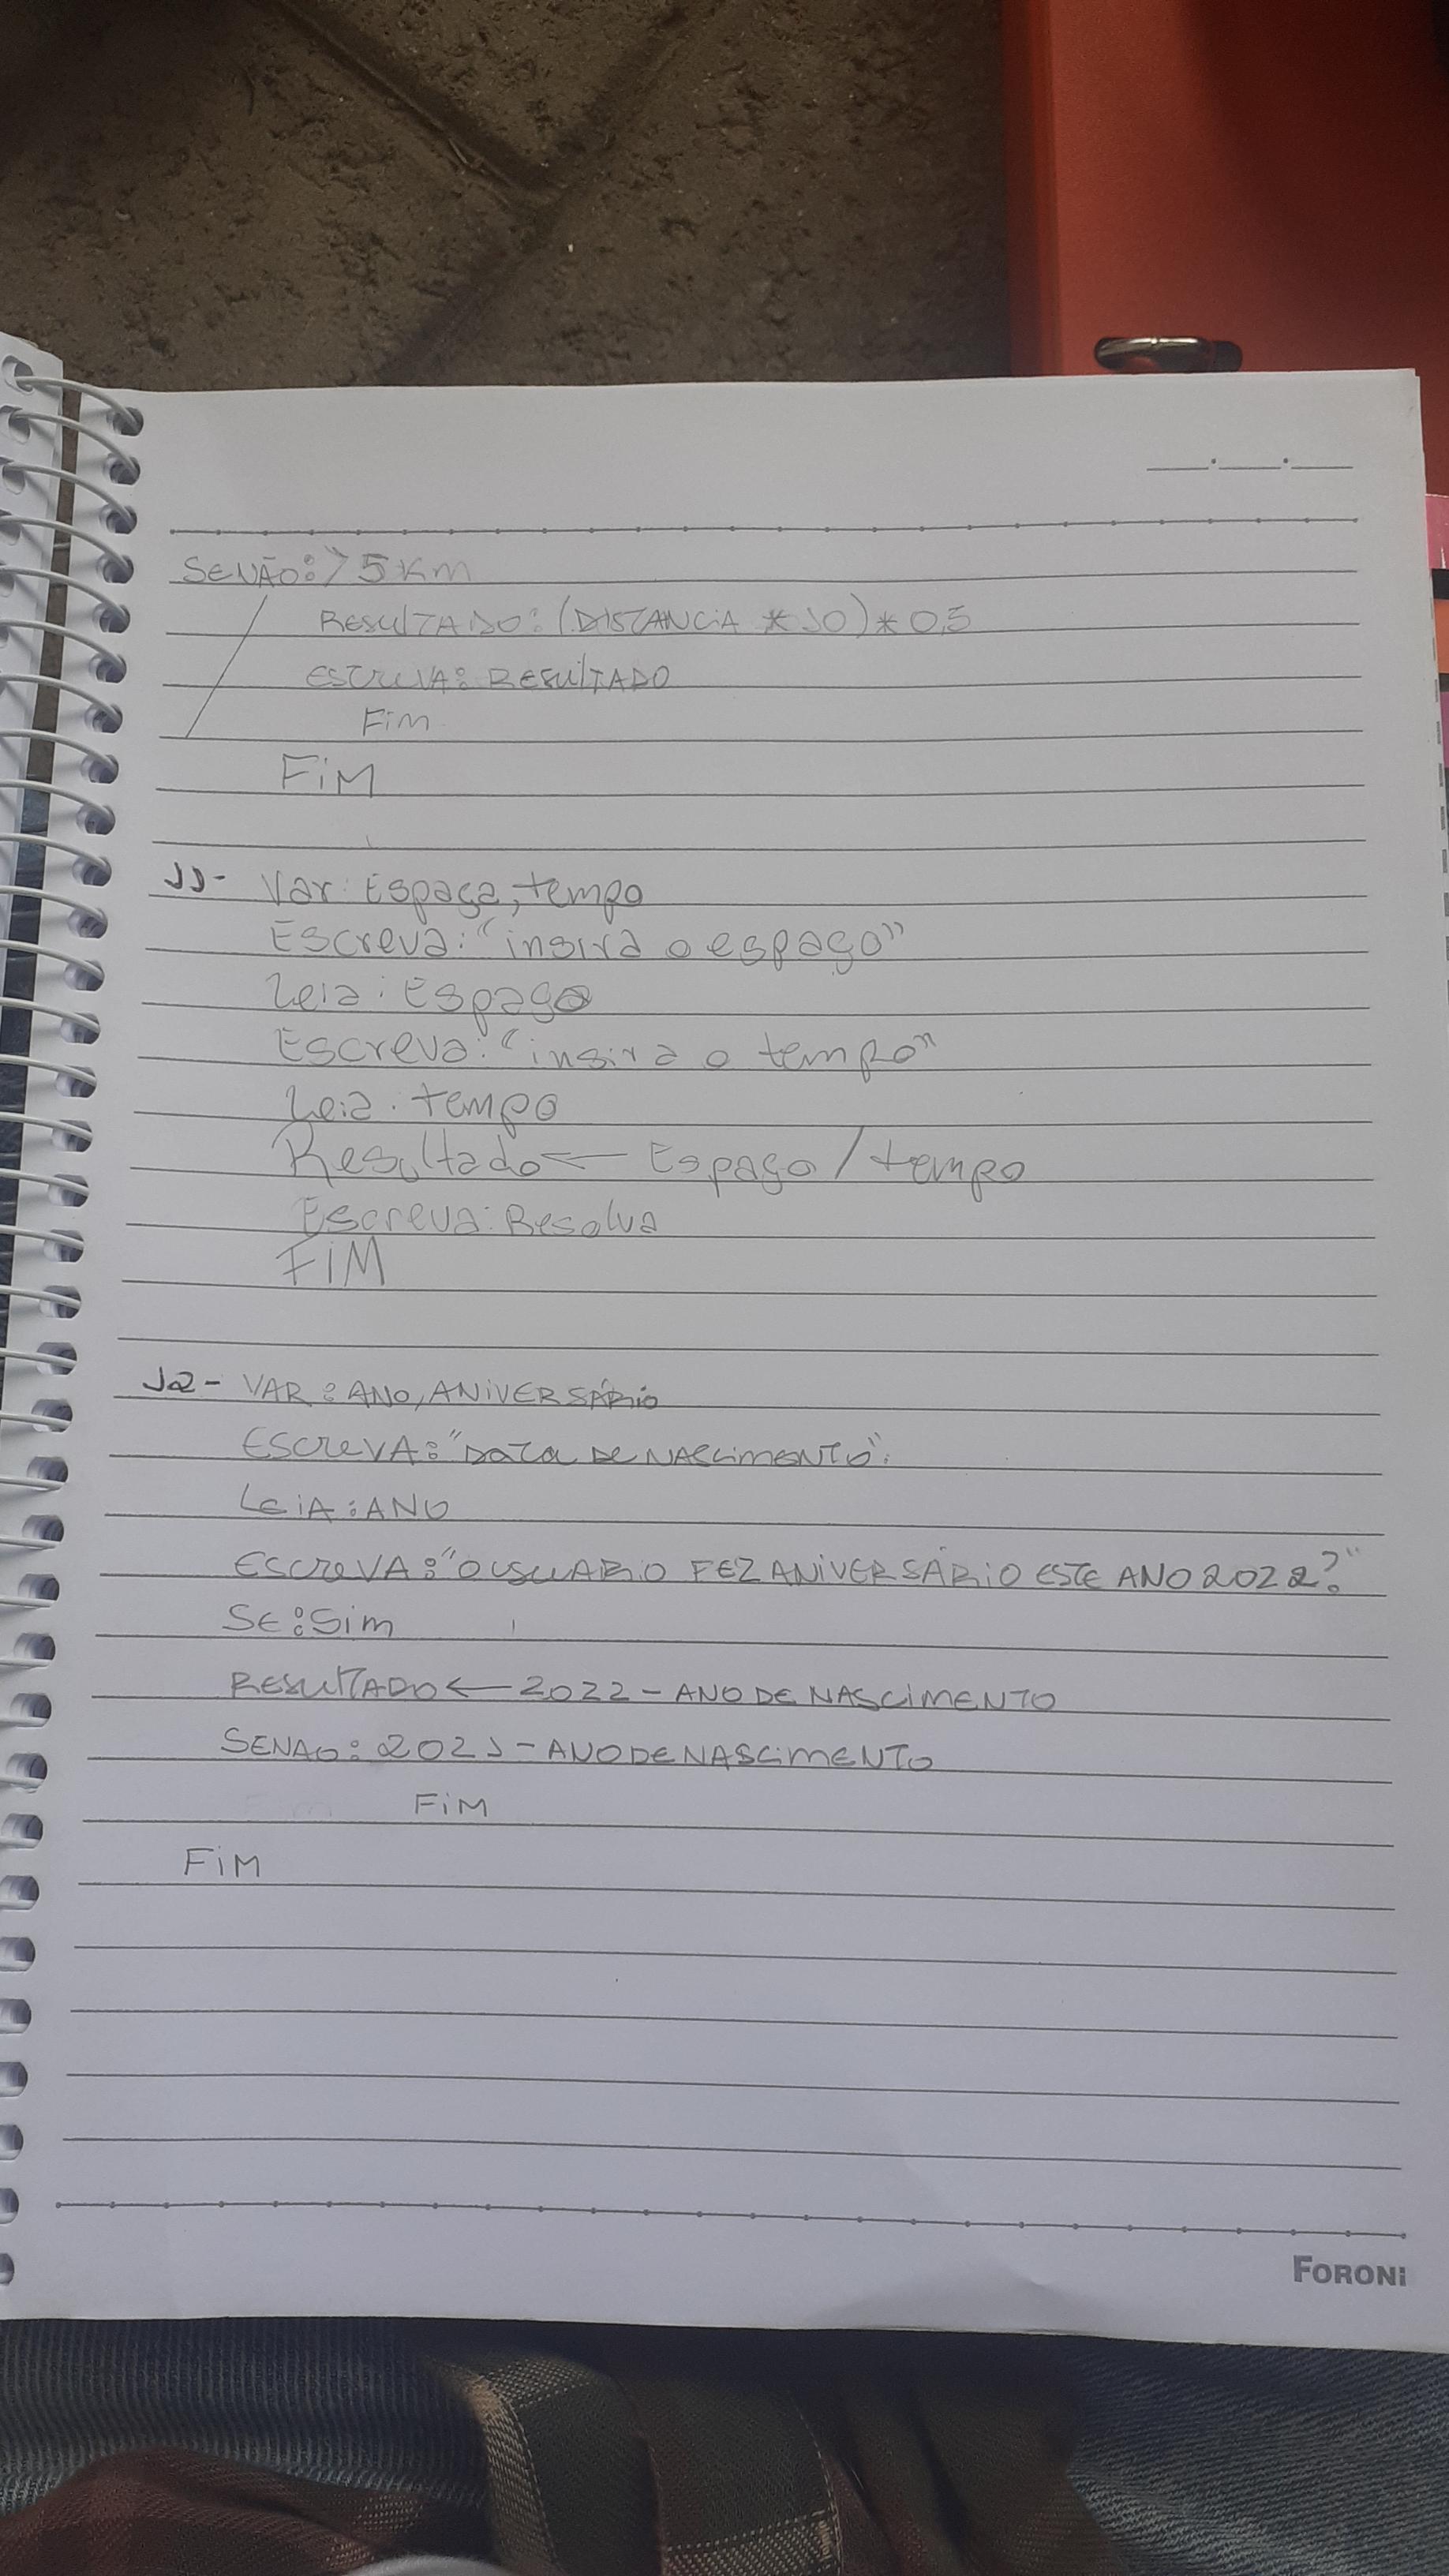 SENÃO: > 5 KM
RESULTADO: (DISTANCIA * 10) * 0,5
ESCREVA: RESULTADO
FIM
FIM
11- Var: Espaça, tempo
Escreva: "insira o espaço"
Leia: Espaço
Escreva: "insira o tempo"
Leia: tempo
Resultado ← Espaço / tempo
Escreva: Resolva
FIM
12- VAR: ANO, ANIVERSÁRIO
ESCREVA: "DATA DE NASCIMENTO".
LEIA: ANO
ESCREVA: "O USUARIO FEZ ANIVERSÁRIO ESTE ANO 2022?"
SE: Sim
RESULTADO ← 2022 - ANO DE NASCIMENTO
SENAO: 2021 - ANO DE NASCIMENTO
FIM
FIM
FORONI